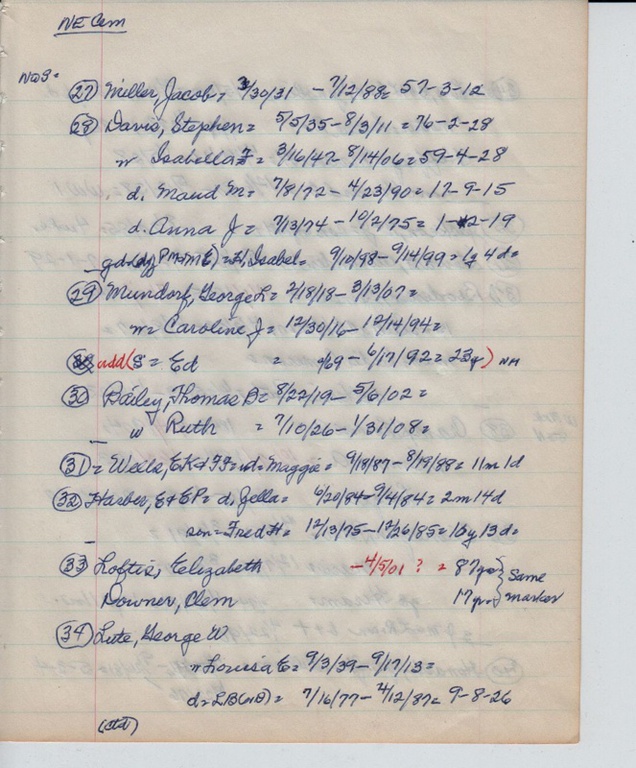 NE Cem
Nos=
(27) Miller, Jacob = 3/30/31 - 7/12/88 = 57-3-12
(28) Davis, Stephen = 5/5/35 - 8/3/11 = 76-2-28
w Isabella F = 3/16/47 - 8/14/06 = 59-4-28
d. Maud M = 7/8/72 - 4/23/90 = 17-9-15
d. Anna J = 7/13/74 - 10/2/75 = 1-2-19
Isabel = 9/10/98 - 9/14/99 = 1y 4d =
(29) Mundorf, George L = 2/18/18 - 3/13/07 =
w = Caroline J = 12/30/16 - 12/14/94 =
add (S = Ed = /69 - 6/17/92 = 23y) NM
(30) Bailey, Thomas B = 8/22/19 - 5/6/02 =
w Ruth = 7/10/26 - 1/31/08 =
(31) = Wells, EK & FF = d = Maggie = 9/18/87 - 8/19/88 = 11m 1d
(32) Harber, E & EP = d, Zella = 6/20/84 - 9/4/84 = 2m 14d
son = Fred H = 12/13/75 - 12/26/85 = 10y 13d =
(33) Loftis, Elizabeth - 4/5/01 ? = 87yr } Same
Downer, Clem 17yr } marker
(34) Lute, George W
w Louisa E = 9/3/39 - 9/17/13 =
d = LB (no D) = 7/16/77 - 4/12/87 = 9-8-26
(ctd)